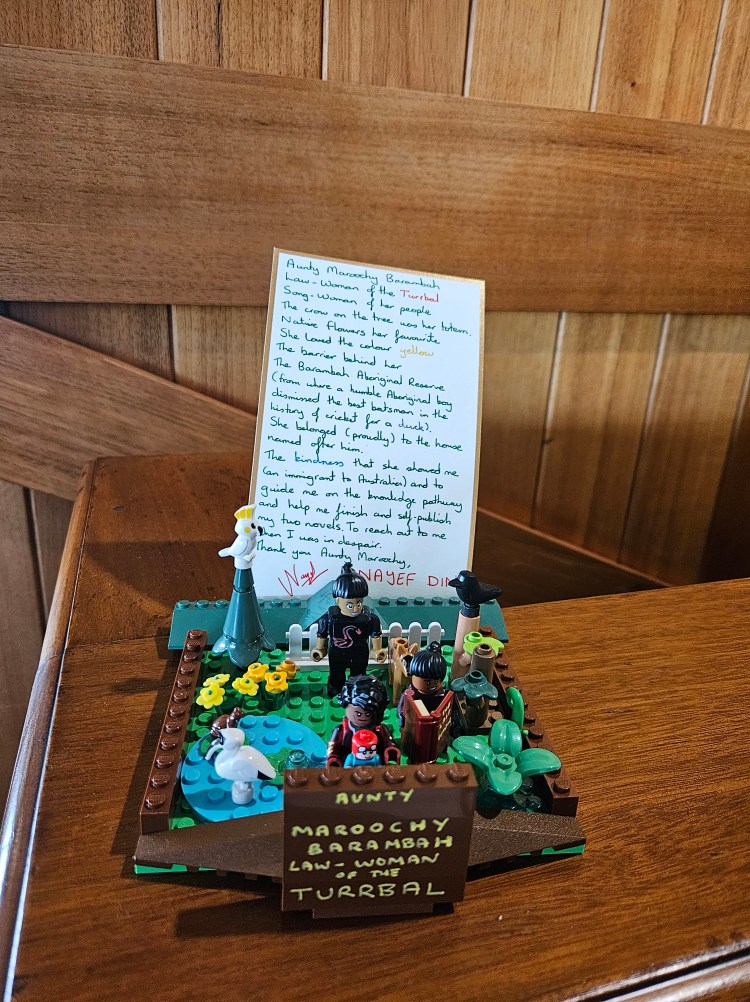 Aunty Maroochy Barambah
Law-Woman of the Turrbal
Song-Woman of her people
The crow on the tree was her totem.
Native flowers her favourite
She loved the colour yellow
The barrier behind her
The Barambah Aboriginal Reserve
(from where a humble Aboriginal boy
dismissed the best batsman in the
history of cricket for a duck).
She belonged (proudly) to the house
named after him.
The kindness that she showed me
(an immigrant to Australia) and to
guide me on the knowledge pathway
and help me finish and self-publish
my two novels. To reach out to me
when I was in despair.
Thank you Aunty Maroochy,
Nayef NAYEF DIN
AUNTY
MAROOCHY
BARAMBAH
LAW-WOMAN
OF THE
TURRBAL